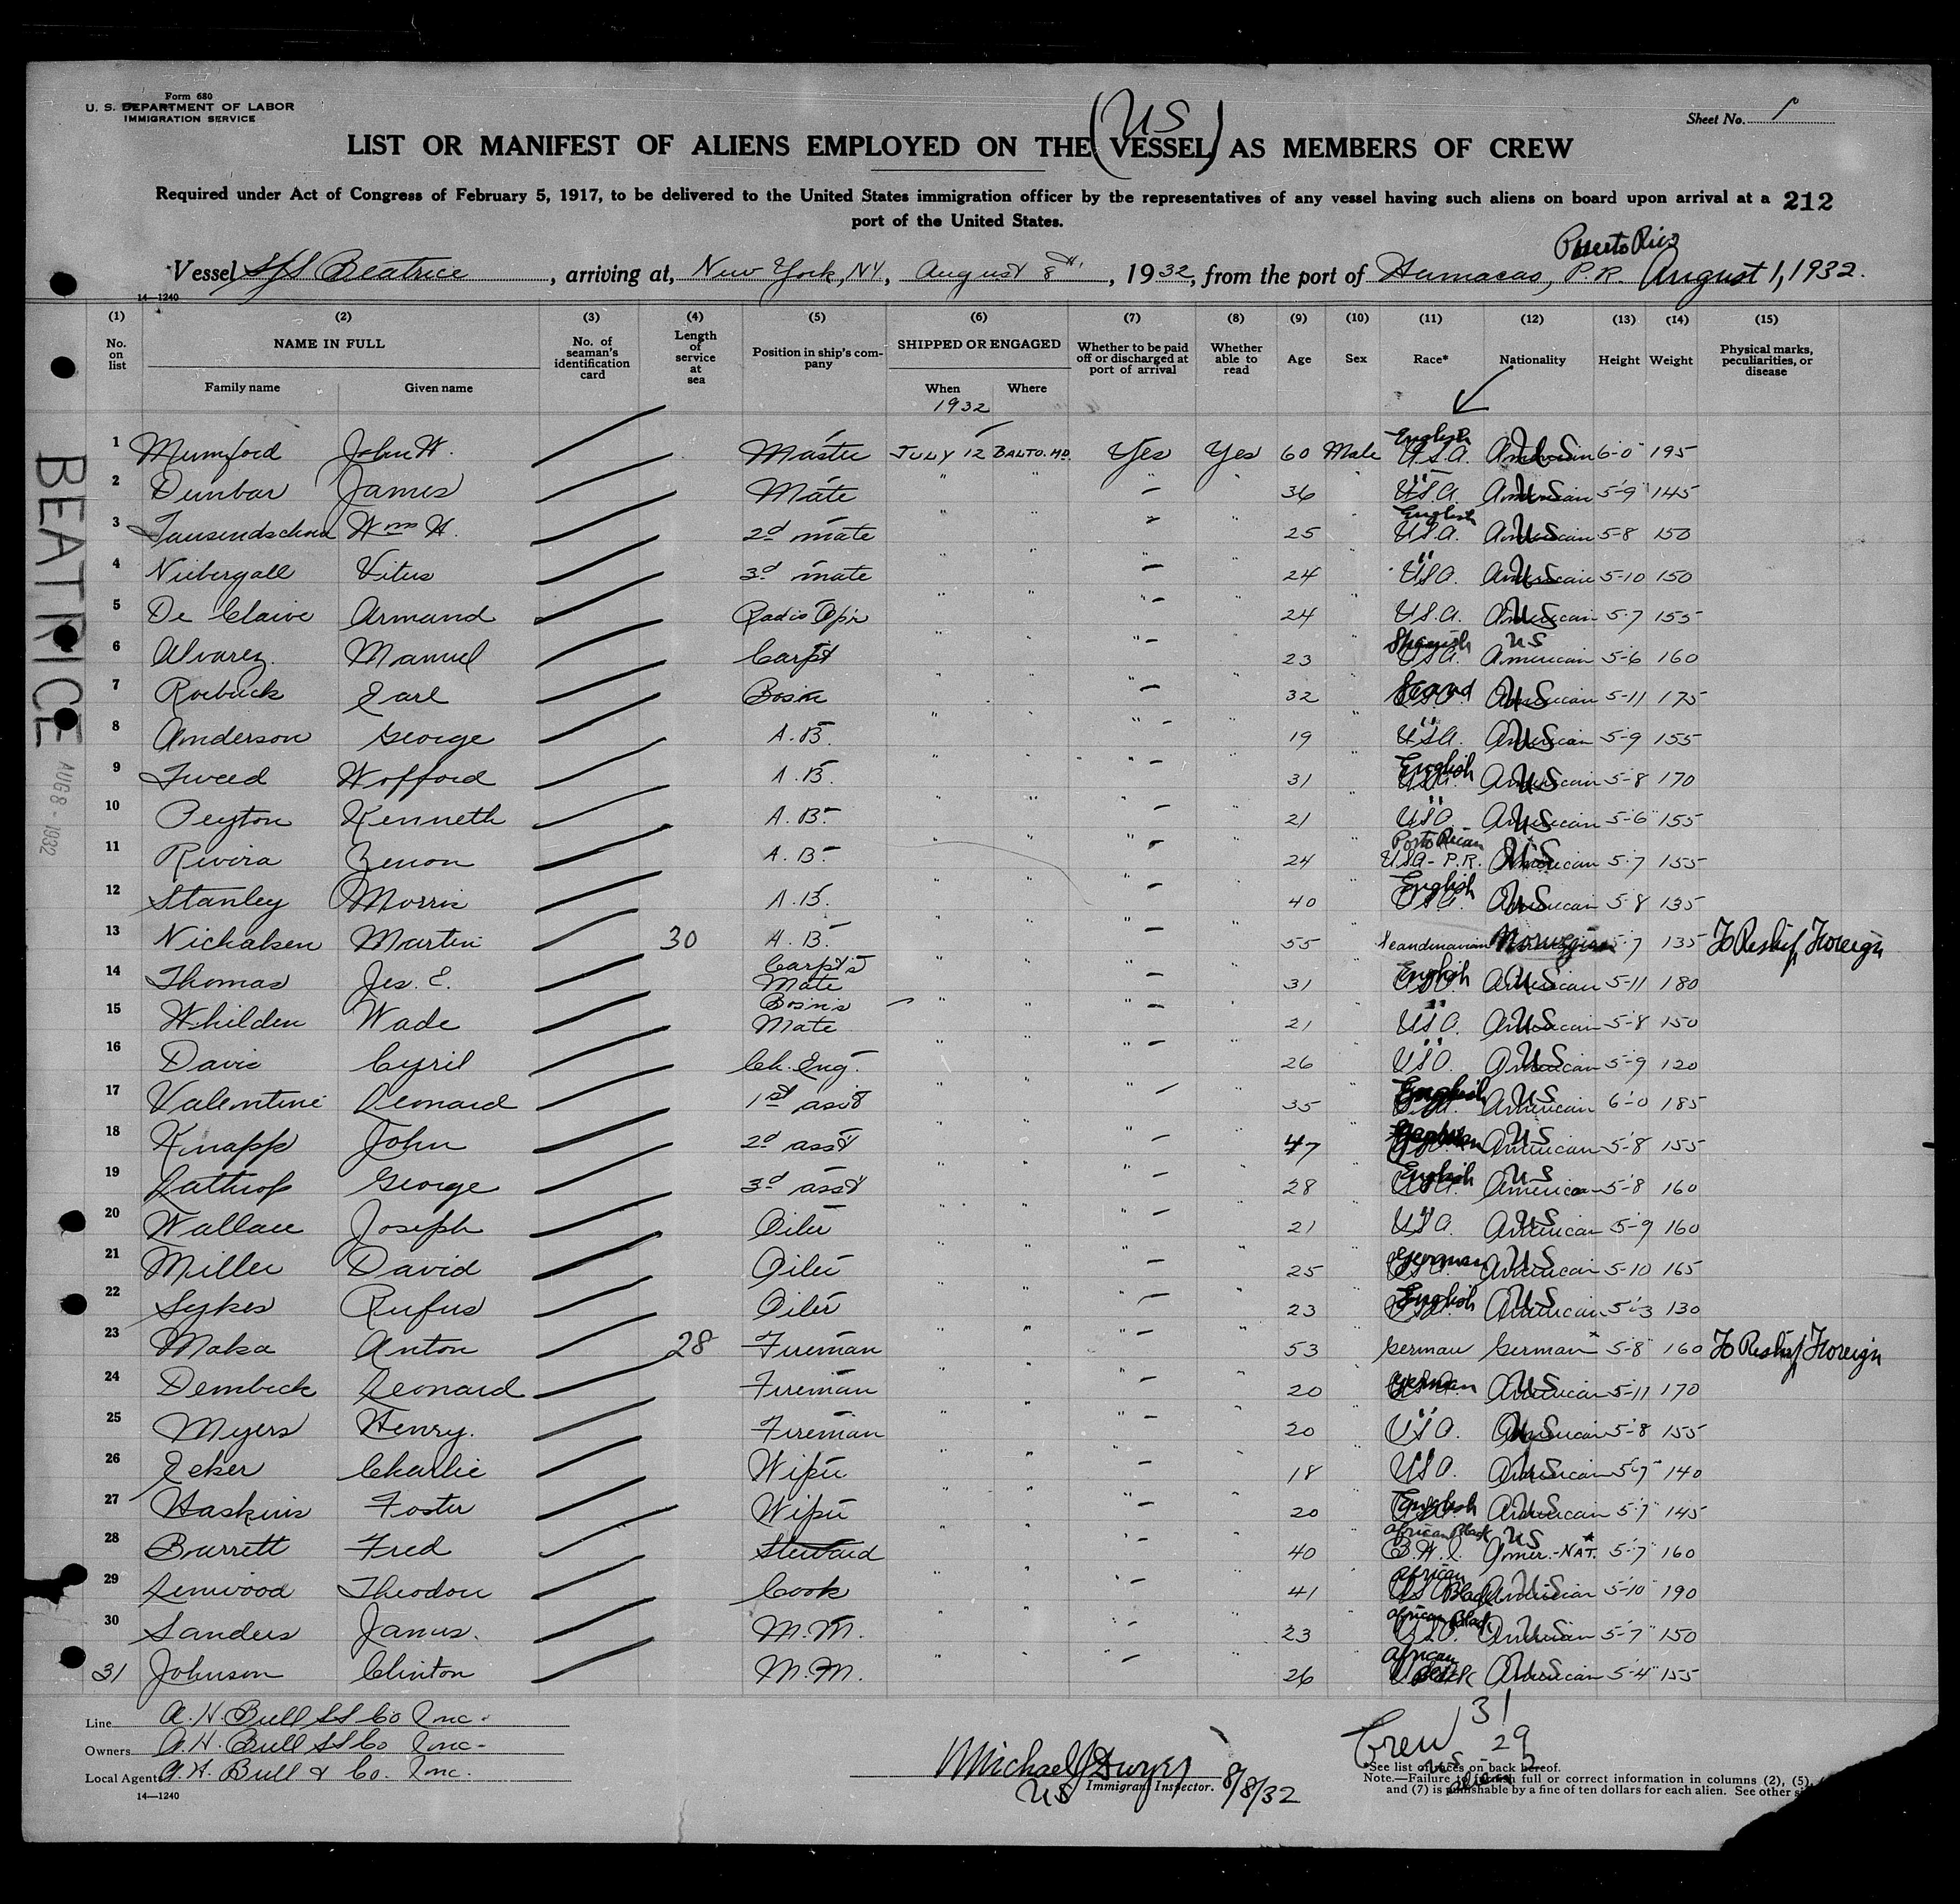 Form 680
U. S. DEPARTMENT OF LABOR
IMMIGRATION SERVICE
Sheet No. 1
(US)
LIST OR MANIFEST OF ALIENS EMPLOYED ON THE VESSEL AS MEMBERS OF CREW
Required under Act of Congress of February 5, 1917, to be delivered to the United States immigration officer by the representatives of any vessel having such aliens on board upon arrival at a 212
port of the United States.
Puerto Rico
Vessel S/S Beatrice, arriving at, New York, NY, August 8th, 1932, from the port of Humacao, P.R. August 1, 1932.
14—1240
(1) (2) (3) (4) (5) (6) (7) (8) (9) (10) (11) (12) (13) (14) (15)
No. on list NAME IN FULL No. of seaman's identification card Length of service at sea Position in ship's company SHIPPED OR ENGAGED Whether to be paid off or discharged at port of arrival Whether able to read Age Sex Race* Nationality Height Weight Physical marks, peculiarities, or disease
Family name Given name When Where
1932
1 Mumford John W. Master JULY 12 BALTO. MD. Yes Yes 60 Male English U.S.A. American US 6-0 195
2 Dunbar James Mate " " " — " 36 " U.S.A. American US 5-9 145
3 Tausendschoen Wm H. 2d mate " " " — " 25 " English U.S.A. American US 5-8 150
4 Niebergall Vitus 3d mate " " " — " 24 " " U.S.A. American US 5-10 150
5 De Claire Armand Radio Opr " " " — " 24 " U.S.A. American US 5-7 155
6 Alvarez Manuel Carpt " " " — " 23 " Spanish U.S.A. American US 5-6 160
7 Roebuck Earl Bosn " " " — " 32 " Scand American US 5-11 175
8 Anderson George A.B. " " " — " 19 " " U.S.A. American US 5-9 155
9 Tweed Wofford A.B. " " " — " 31 " English U.S.A. American US 5-8 170
10 Peyton Kenneth A.B. " " " — " 21 " " U.S.A. American US 5-6 155
11 Rivira Zenon A.B. " " " — " 24 " Porto Rican U.S.A - P.R. American US 5-7 155
12 Stanley Morris A.B. " " " — " 40 " English U.S.A. American US 5-8 135
13 Nichalsen Martin 30 A.B. " " " — " 55 " Scandinavian Norwegian 5-7 135 To Reship Foreign
14 Thomas Jes. E. Carpt's Mate " " " — " 31 " English U.S.A. American US 5-11 180
15 Whilden Wade Bosn's Mate " " " — " 21 " " U.S.A. American US 5-8 150
16 Davis Cyril Ch. Eng. " " " — " 26 " " U.S.A. American US 5-9 120
17 Valentine Leonard 1st asst " " " — " 35 " English U.S.A. American US 6-0 185
18 Knapp John 2d asst " " " — " 47 " American US 5-8 155
19 Lathrop George 3d asst " " " — " 28 " English U.S.A. American US 5-8 160
20 Wallace Joseph Oiler " " " — " 21 " " U.S.A. American US 5-9 160
21 Miller David Oiler " " " — " 25 " German U.S.A. American US 5-10 165
22 Sykes Rufus Oiler " " " — " 23 " English U.S.A. American US 5-3 130
23 Maka Anton 28 Fireman " " " — " 53 " German German 5-8 160 To Reship Foreign
24 Dembeck Leonard Fireman " " " — " 20 " German U.S.A. American US 5-11 170
25 Myers Henry. Fireman " " " — " 20 " " U.S.A. American US 5-8 155
26 Eker Charlie Wiper " " " — " 18 " U.S.A. American US 5-7 140
27 Haskins Foster Wiper " " " — " 20 " English U.S.A. American US 5-7 145
28 Barrett Fred Steward " " " — " 40 " African Black B.W.I. Amer.-NAT. US 5-7 160
29 Linwood Theodore Cook " " " — " 41 " African Black U.S.A. American US 5-10 190
30 Sanders James. M.M. " " " — " 23 " African Black U.S.A. American US 5-7 150
31 Johnson Clinton M.M. " " " — " 26 African Black American US 5-4 155
Line A. H. Bull SS Co Inc.
Owners A. H. Bull SS Co Inc.
Local Agents A. H. Bull & Co. Inc.
14—1240
Michael J Dwyer
US Immigrant Inspector. 8/8/32
Crew 31
US 29
alien 2
*See list of races on back hereof.
Note.—Failure to furnish full or correct information in columns (2), (5),
and (7) is punishable by a fine of ten dollars for each alien. See other
BEATRICE
AUG 8 - 1932